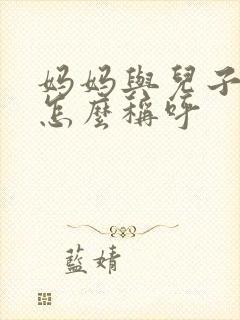 妈妈與兒子
怎麼稱呼
藍婧